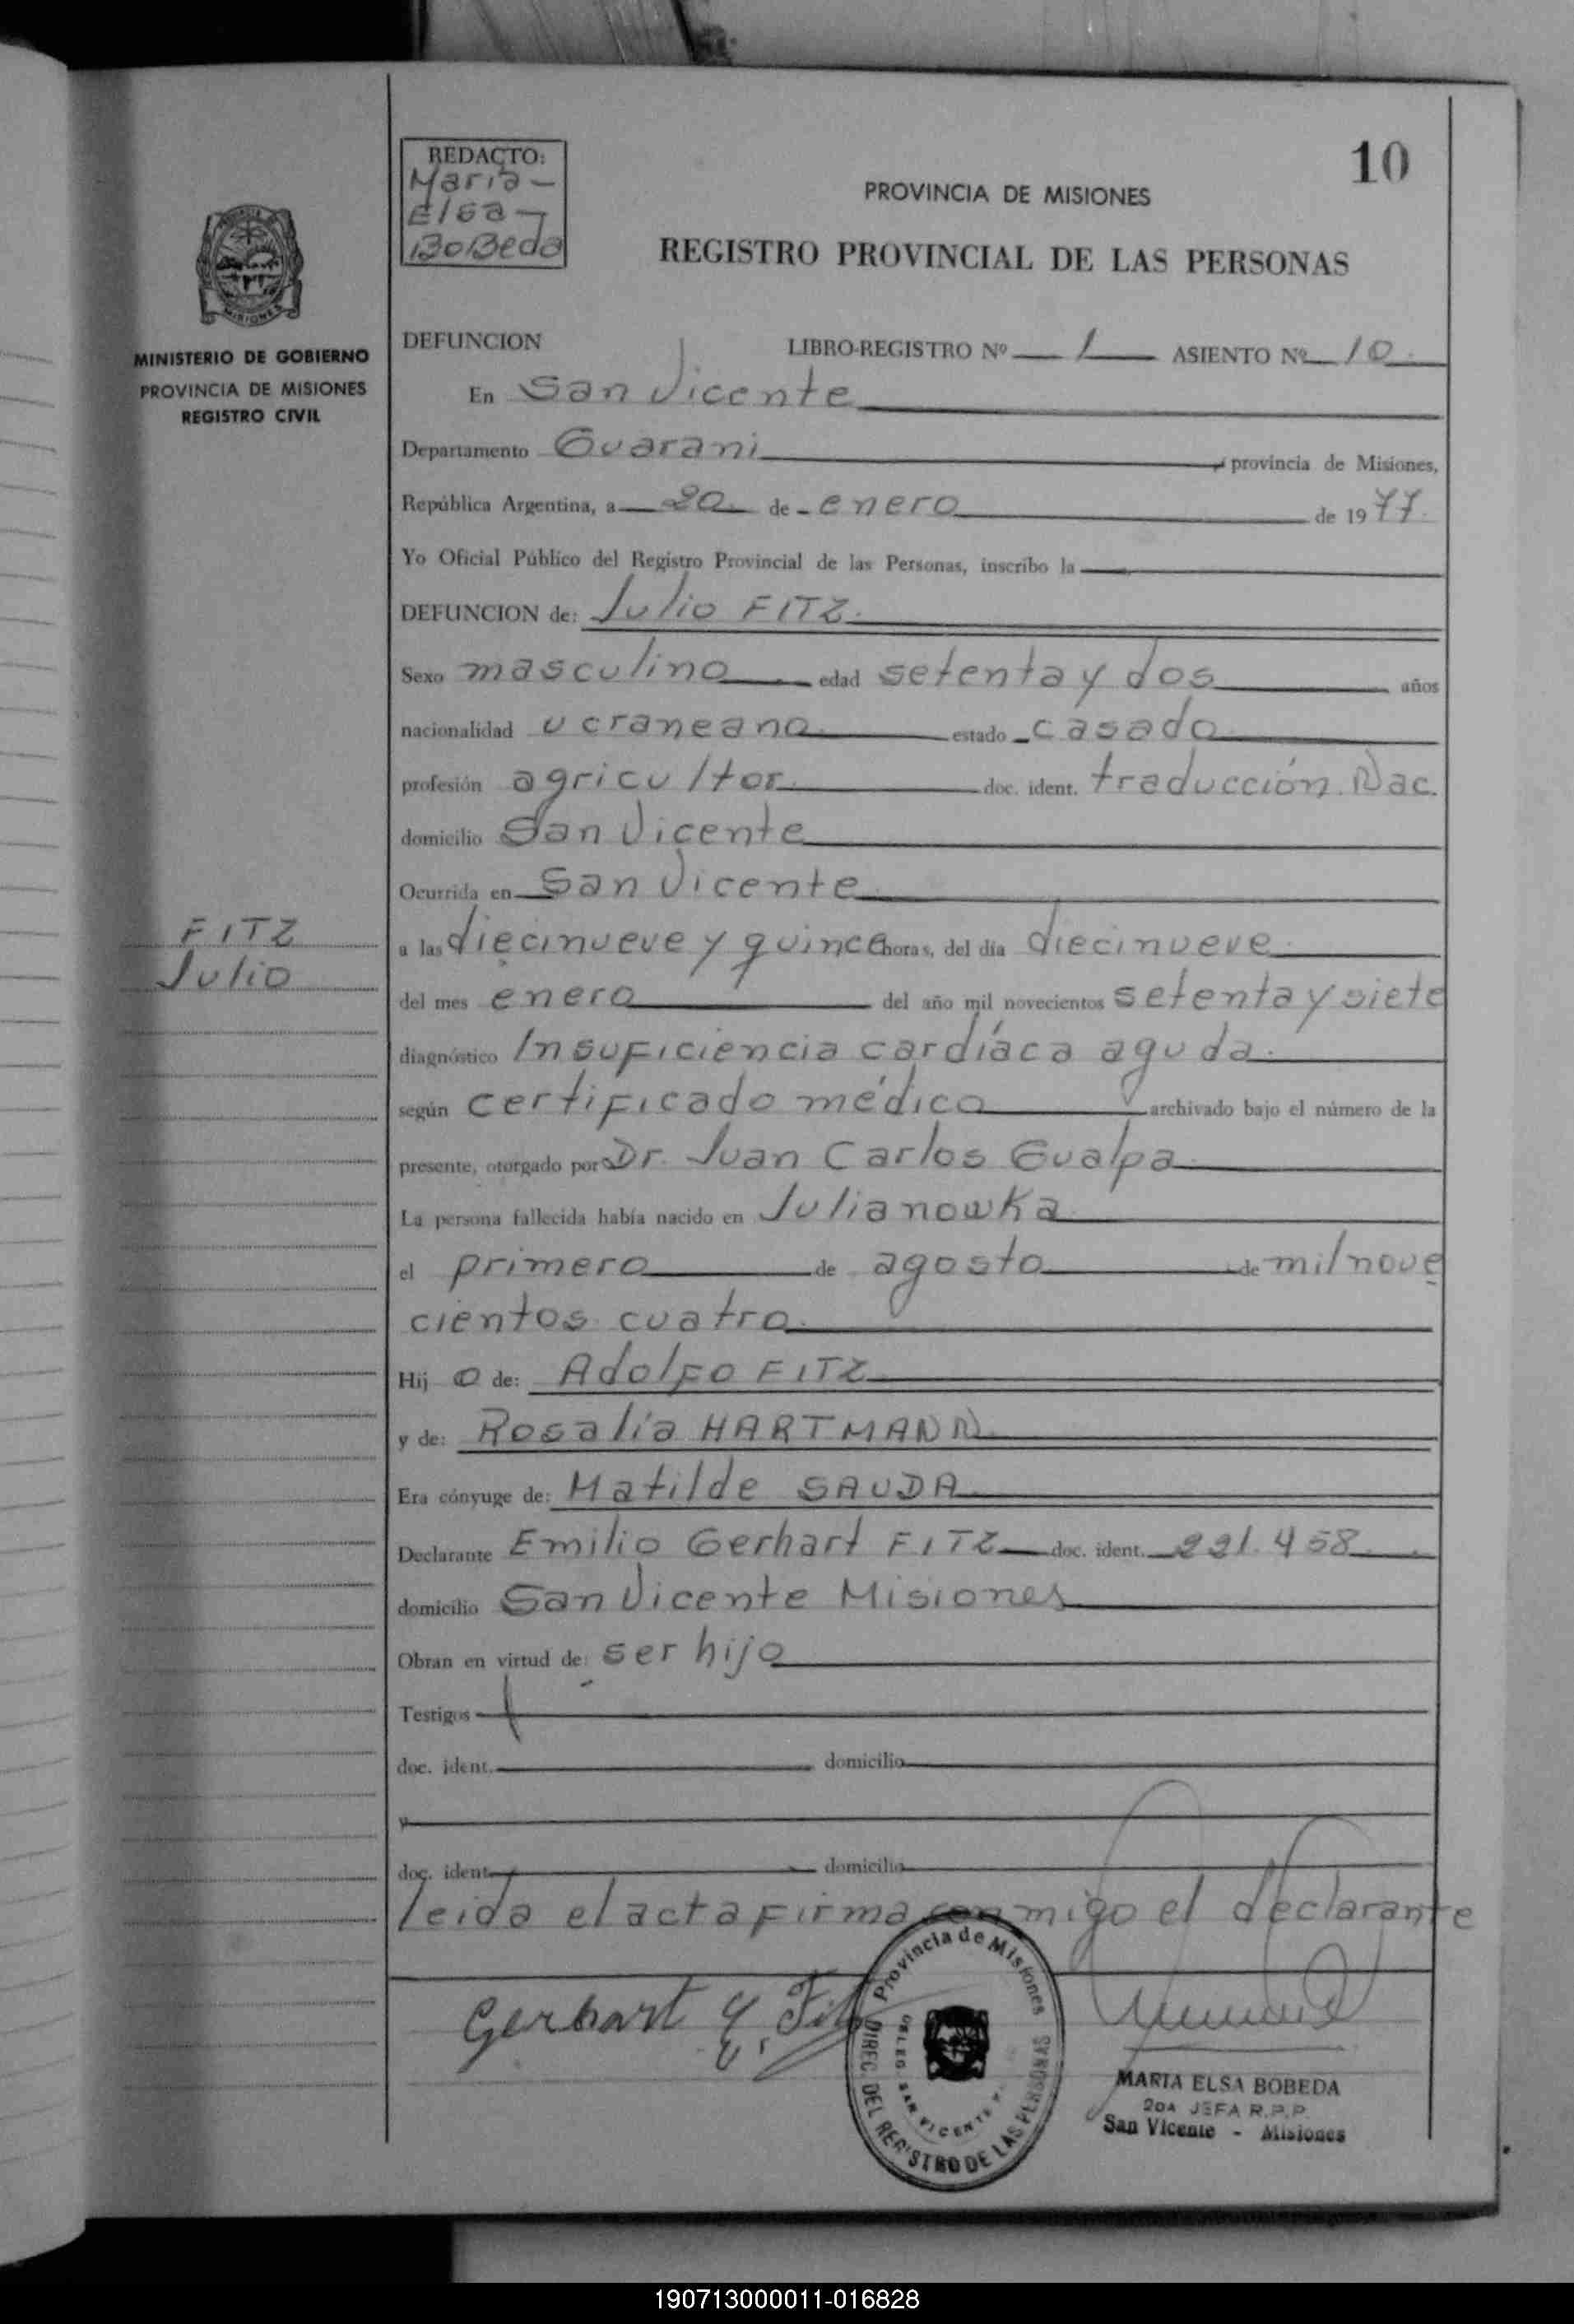 10
REDACTO:
Maria -
Elsa -
BoBeda
PROVINCIA DE MISIONES
REGISTRO PROVINCIAL DE LAS PERSONAS
MISIONES
MINISTERIO DE GOBIERNO
PROVINCIA DE MISIONES
REGISTRO CIVIL
DEFUNCION LIBRO-REGISTRO Nº 1 ASIENTO Nº 10.
En San Vicente
Departamento Guarani provincia de Misiones,
República Argentina, a 20 de enero de 1977.
Yo Oficial Público del Registro Provincial de las Personas, inscribo la
DEFUNCION de: Julio FITZ.
Sexo masculino edad setenta y dos años
nacionalidad ucraneano estado casado
profesión agricultor doc. ident. traducción Nac.
domicilio San Vicente
Ocurrida en San Vicente
FITZ
Julio
a las diecinueve y quince horas, del día diecinueve
del mes enero del año mil novecientos setenta y siete
diagnóstico Insuficiencia cardíaca aguda.
según certificado médico archivado bajo el número de la
presente, otorgado por Dr. Juan Carlos Gualpa
La persona fallecida había nacido en Julianowka
el primero de agosto de mil nove
cientos cuatro.
Hij o de: Adolfo FITZ
y de: Rosalía HARTMANN
Era cónyuge de: Matilde SAUDA
Declarante Emilio Gerhart FITZ doc. ident. 221.458
domicilio San Vicente Misiones
Obran en virtud de: ser hijo
Testigos
doc. ident. domicilio
y
doc. ident. domicilio
leida el acta firma conmigo el declarante
Gerhart
Provincia de Misiones
DIREC. DEL REGISTRO DE LAS PERSONAS
DELEG. SAN VICENTE
MARIA ELSA BOBEDA
2DA JEFA R.P.P.
San Vicente - Misiones
190713000011-016828